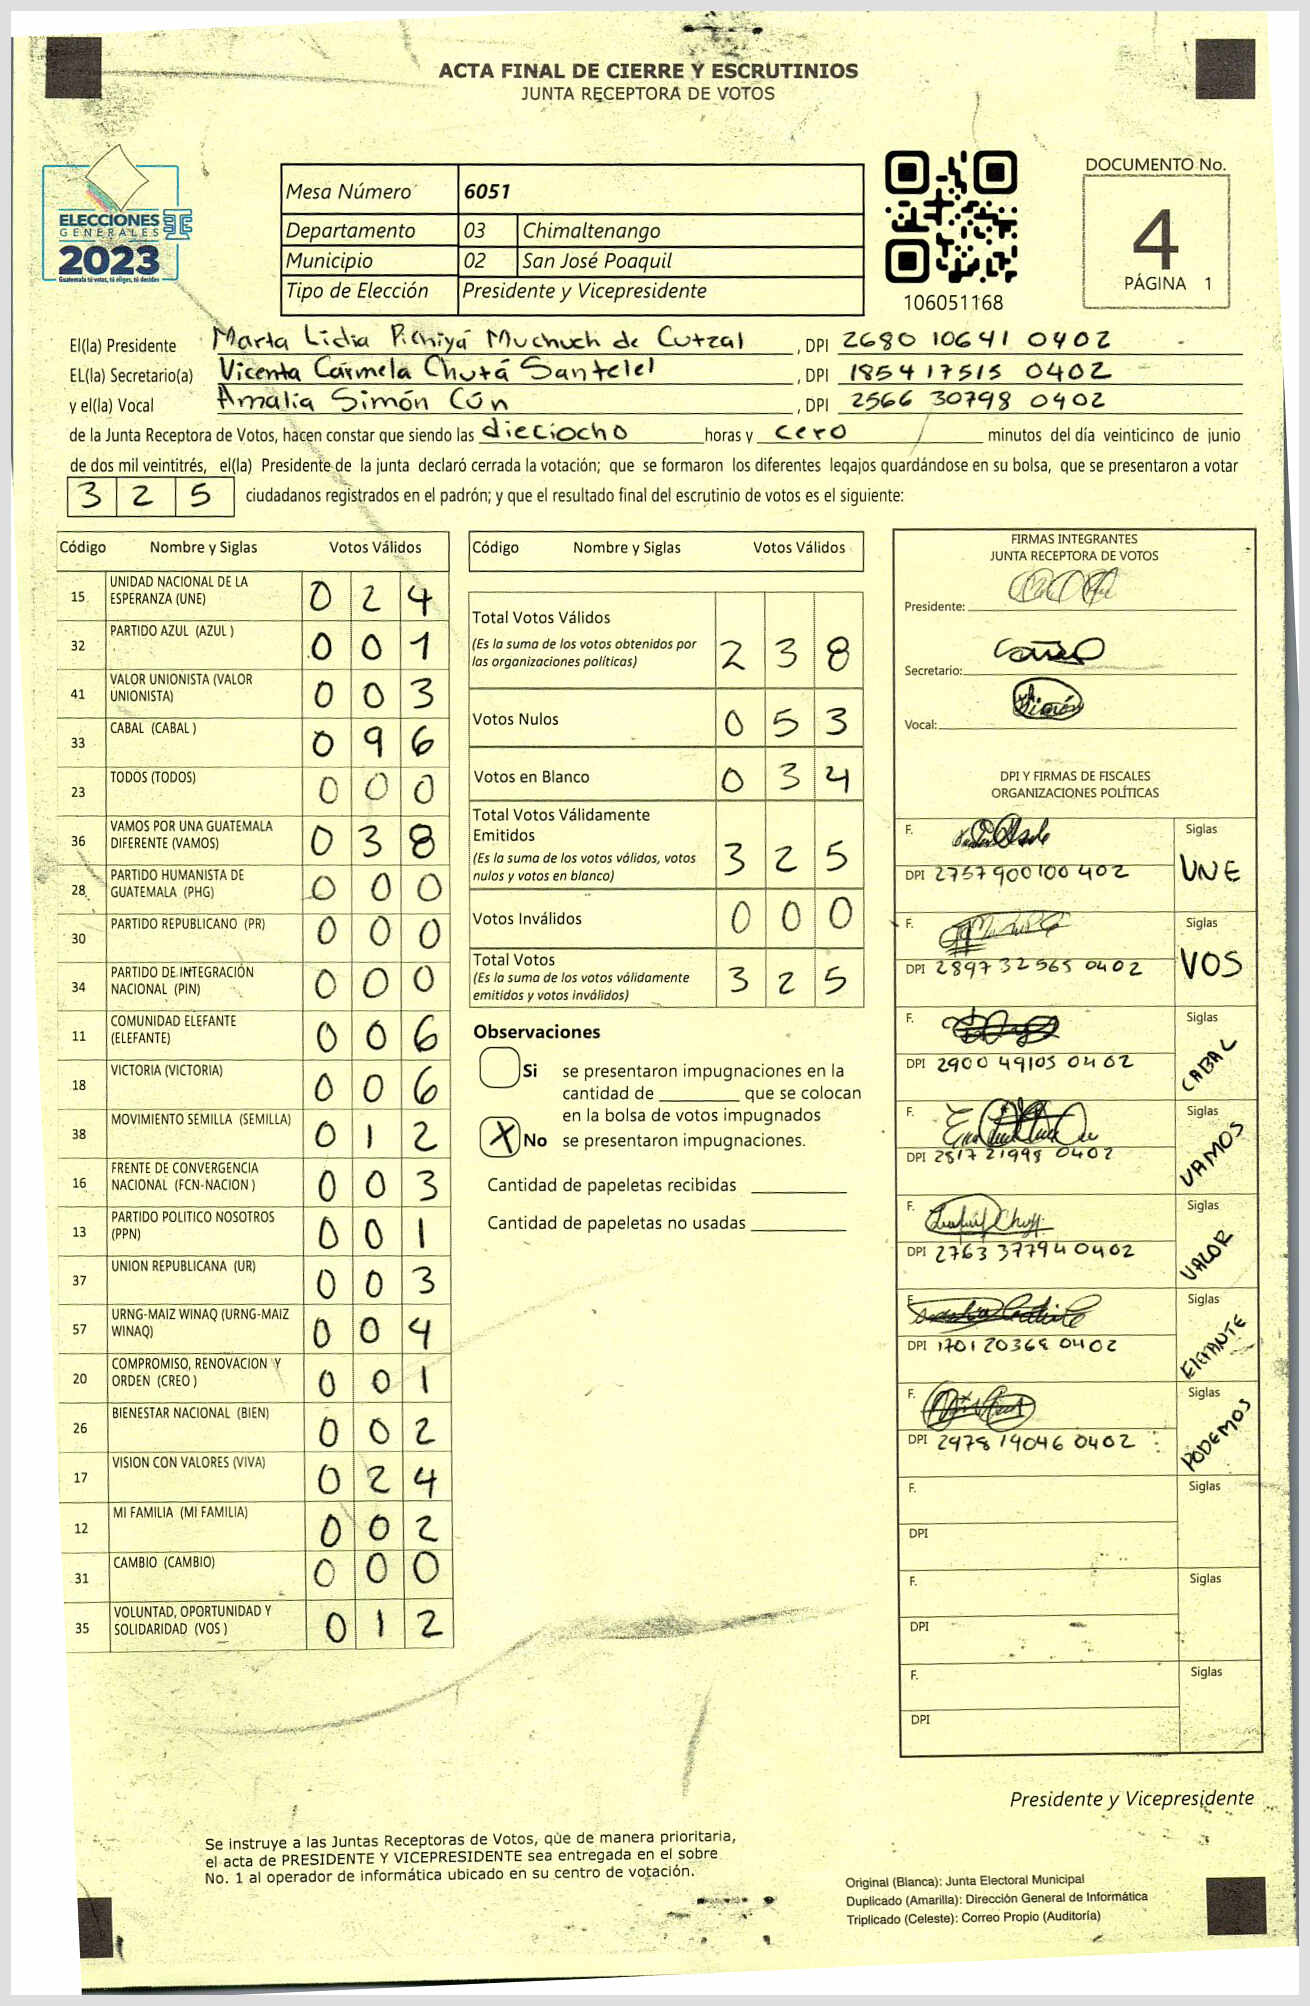 ACTA FINAL DE CIERRE Y ESCRUTINIOS
JUNTA RECEPTORA DE VOTOS
ELECCIONES
GENERALES
2023
Guatemala tú votas, tú eliges, tú decides
Mesa Número 6051
Departamento 03 Chimaltenango
Municipio 02 San José Poaquil
Tipo de Elección Presidente y Vicepresidente
106051168
DOCUMENTO No.
4
PÁGINA 1
El(la) Presidente Marta Lidia Pichiyá Muchuch de Cutzal, DPI 2680 10641 0402
EL(la) Secretario(a) Vicenta Carmela Chutá Santelel, DPI 1854 17515 0402
y el(la) Vocal Amalia Simón Cún, DPI 2566 30798 0402
de la Junta Receptora de Votos, hacen constar que siendo las dieciocho horas y cero minutos del día veinticinco de junio
de dos mil veintitrés, el(la) Presidente de la junta declaró cerrada la votación; que se formaron los diferentes legajos guardándose en su bolsa, que se presentaron a votar
3 2 5 ciudadanos registrados en el padrón; y que el resultado final del escrutinio de votos es el siguiente:
Código Nombre y Siglas Votos Válidos
15 UNIDAD NACIONAL DE LA ESPERANZA (UNE) 0 2 4
32 PARTIDO AZUL (AZUL ) 0 0 1
41 VALOR UNIONISTA (VALOR UNIONISTA) 0 0 3
33 CABAL (CABAL ) 0 9 6
23 TODOS (TODOS) 0 0 0
36 VAMOS POR UNA GUATEMALA DIFERENTE (VAMOS) 0 3 8
28 PARTIDO HUMANISTA DE GUATEMALA (PHG) 0 0 0
30 PARTIDO REPUBLICANO (PR) 0 0 0
34 PARTIDO DE INTEGRACIÓN NACIONAL (PIN) 0 0 0
11 COMUNIDAD ELEFANTE (ELEFANTE) 0 0 6
18 VICTORIA (VICTORIA) 0 0 6
38 MOVIMIENTO SEMILLA (SEMILLA) 0 1 2
16 FRENTE DE CONVERGENCIA NACIONAL (FCN-NACION ) 0 0 3
13 PARTIDO POLITICO NOSOTROS (PPN) 0 0 1
37 UNION REPUBLICANA (UR) 0 0 3
57 URNG-MAIZ WINAQ (URNG-MAIZ WINAQ) 0 0 4
20 COMPROMISO, RENOVACION Y ORDEN (CREO ) 0 0 1
26 BIENESTAR NACIONAL (BIEN) 0 0 2
17 VISION CON VALORES (VIVA) 0 2 4
12 MI FAMILIA (MI FAMILIA) 0 0 2
31 CAMBIO (CAMBIO) 0 0 0
35 VOLUNTAD, OPORTUNIDAD Y SOLIDARIDAD (VOS ) 0 1 2
Código Nombre y Siglas Votos Válidos
Total Votos Válidos
(Es la suma de los votos obtenidos por
las organizaciones políticas) 2 3 8
Votos Nulos 0 5 3
Votos en Blanco 0 3 4
Total Votos Válidamente
Emitidos
(Es la suma de los votos válidos, votos
nulos y votos en blanco) 3 2 5
Votos Inválidos 0 0 0
Total Votos
(Es la suma de los votos válidamente
emitidos y votos inválidos) 3 2 5
Observaciones
Si se presentaron impugnaciones en la
cantidad de ________ que se colocan
en la bolsa de votos impugnados
X No se presentaron impugnaciones.
Cantidad de papeletas recibidas
Cantidad de papeletas no usadas
FIRMAS INTEGRANTES
JUNTA RECEPTORA DE VOTOS
Presidente:
Secretario:
Vocal: Simón
DPI Y FIRMAS DE FISCALES
ORGANIZACIONES POLÍTICAS
F. Siglas
DPI 2757 900100 402 UNE
F. Siglas
DPI 2897 32565 0402 VOS
F. Siglas
DPI 2900 49105 0402 CABAL
F. Siglas
DPI 2817 21998 0402 VAMOS
F. Siglas
DPI 2763 37794 0402 VALOR
F. Siglas
DPI 1701 20368 0402 ElEfANTE
F. Siglas
DPI 2978 19046 0402 PODEMOS
F. Siglas
DPI
F. Siglas
DPI
F. Siglas
DPI
Presidente y Vicepresidente
Se instruye a las Juntas Receptoras de Votos, que de manera prioritaria,
el acta de PRESIDENTE Y VICEPRESIDENTE sea entregada en el sobre
No. 1 al operador de informática ubicado en su centro de votación.
Original (Blanca): Junta Electoral Municipal
Duplicado (Amarilla): Dirección General de Informática
Triplicado (Celeste): Correo Propio (Auditoría)